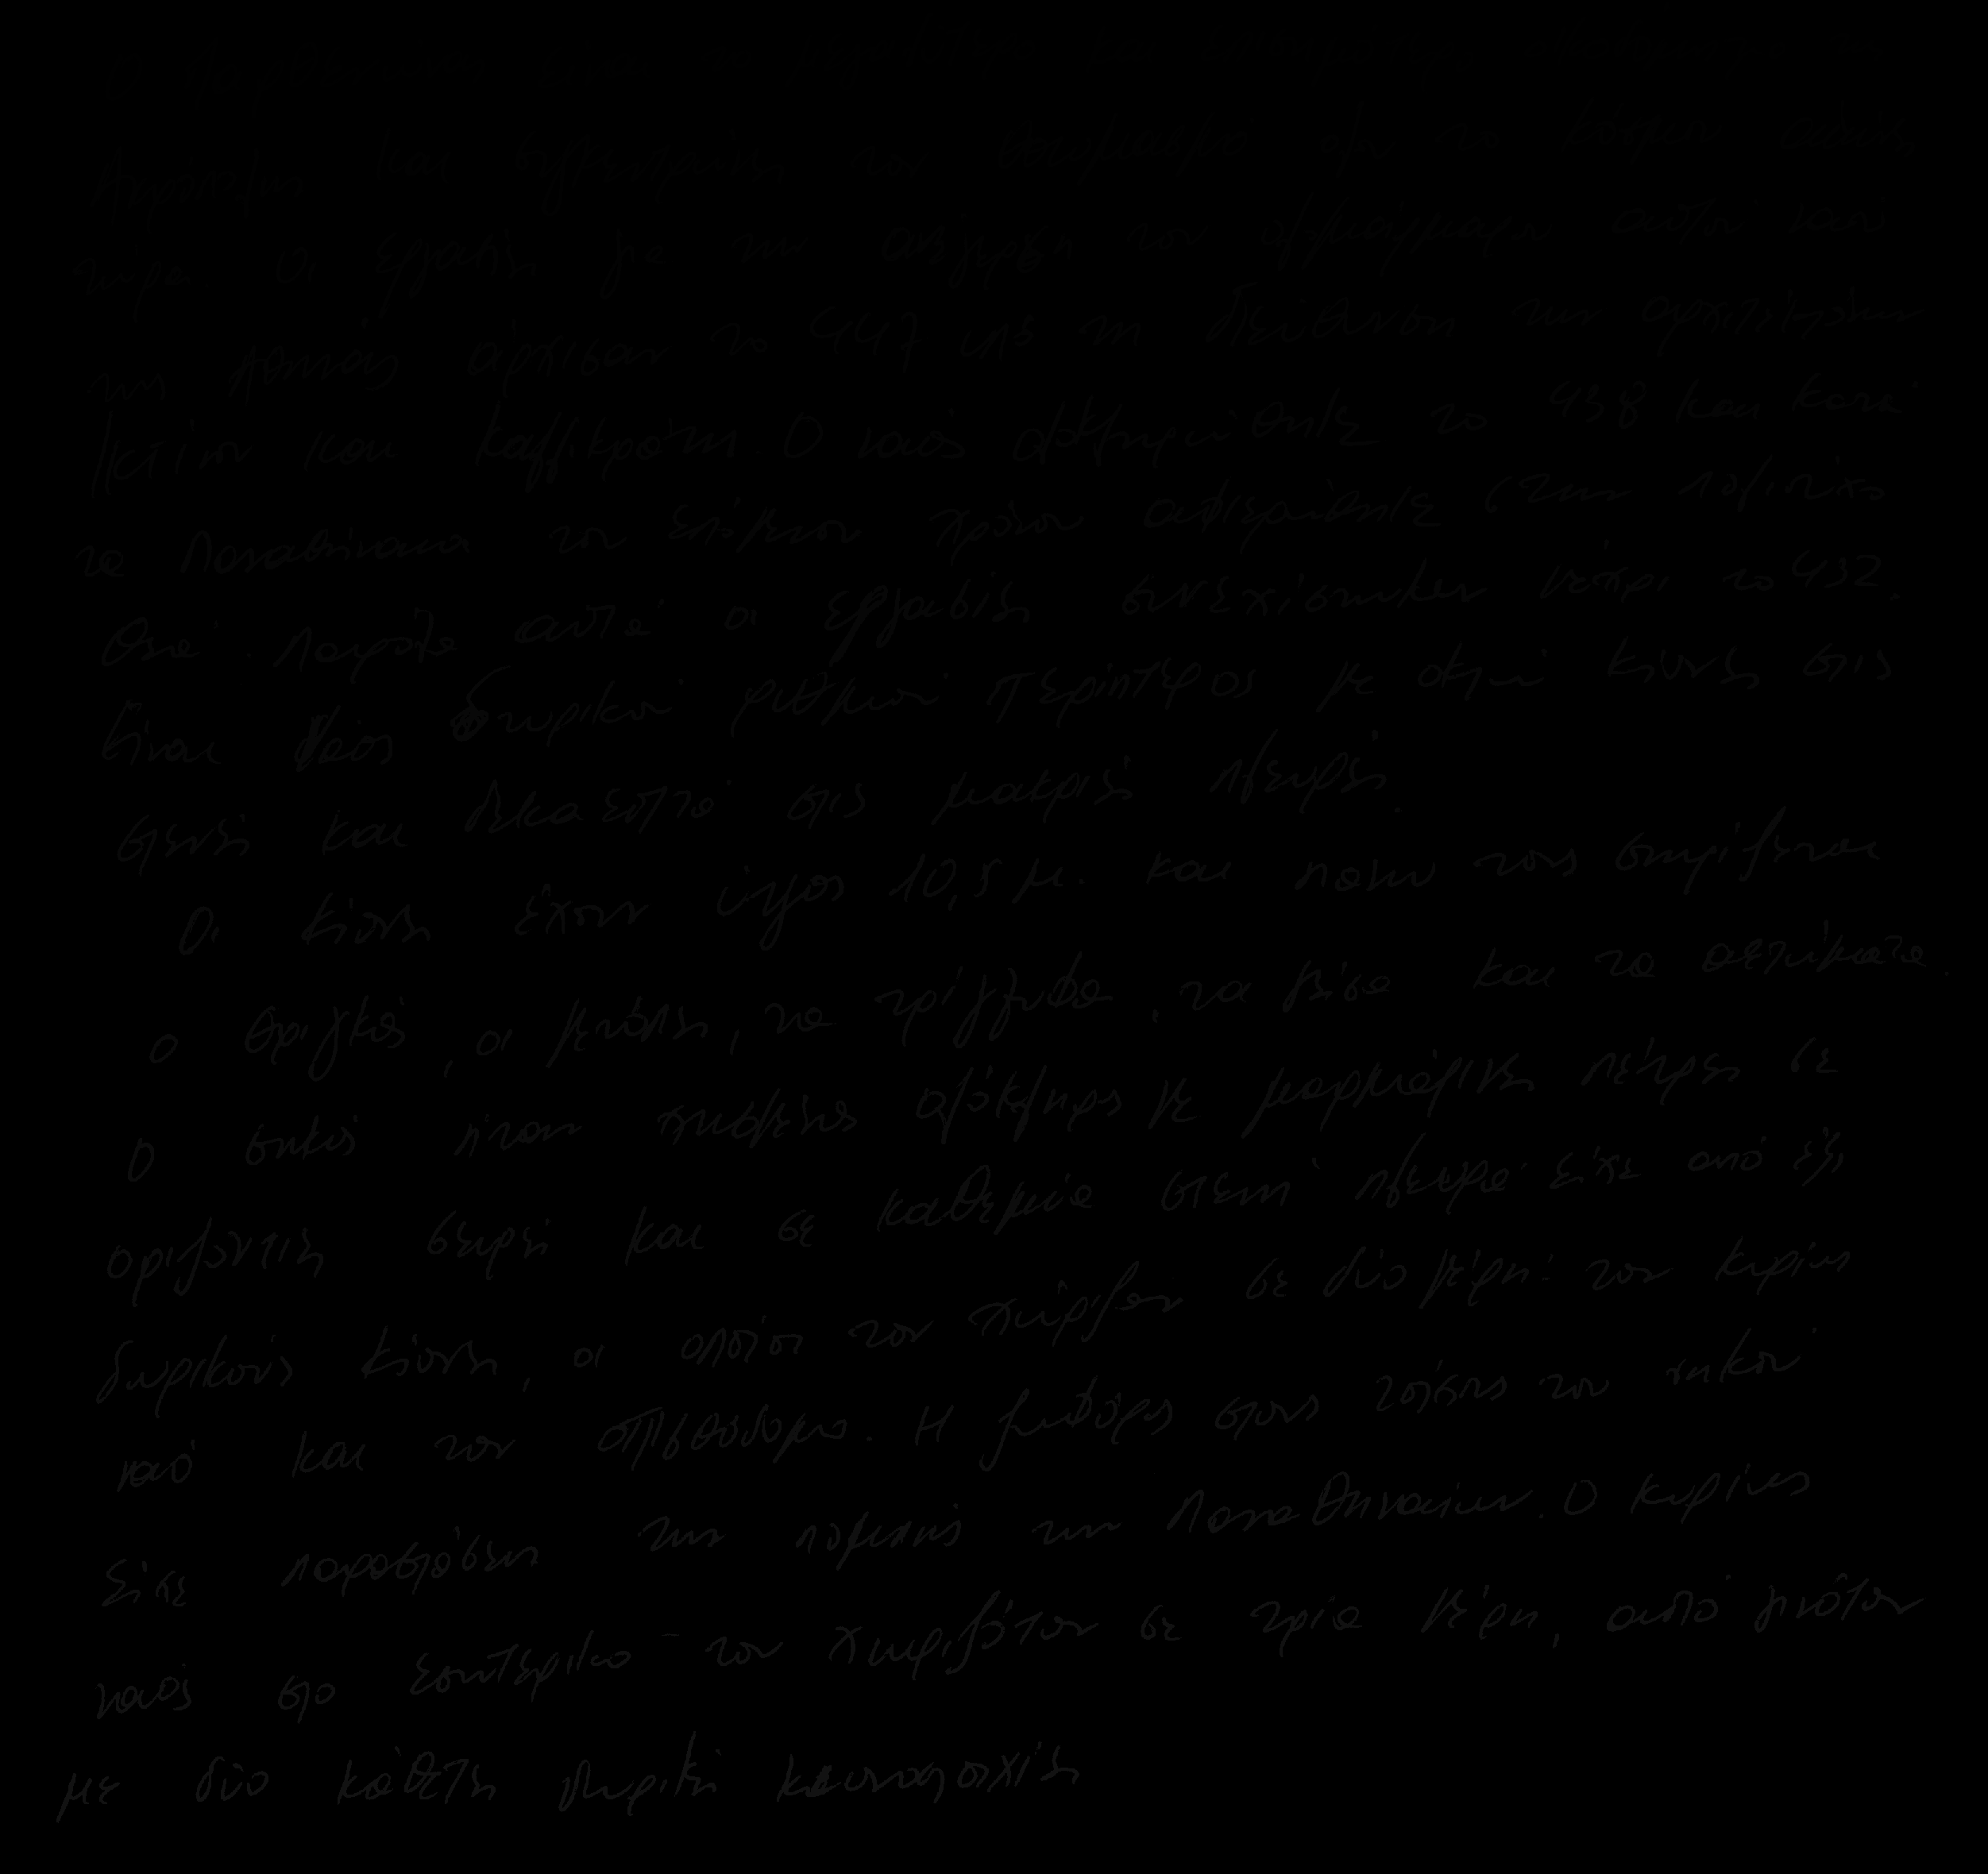 Ακρόπολη και συγκεντρώνει τον θαυμασμό όλου του κόσμου εκεί
τώρα. Οι εργασίες για την ανέγερση του αλματόμαρου αυτού ναού
της Αθηνάς άρχισαν το 447 υπό τη διεύθυνση των αρχιτεκτόνων
Ικτίνου και Καλλικράτη. Ο ναός ολοκληρώθηκε το 438 και κατά
τα Παναθήναια του επόμενου χρόνου αφιερώθηκε στην πολιούχο
θεά. Παρόλα αυτά οι εργασίες συνεχίστηκαν μέχρι το 432.
Είναι ναός δωρικού ρυθμού περίπτερος με οκτώ κίονες στις
στενές και δεκαεπτά στις μακριές πλευρές.
Οι κίονες έχουν ύψος 10,5 μ. και πάνω τους στηρίζεται
ο θριγκός, οι μετόπες, τα τρίγλυφα, τα γείσα και τα αετώματα.
Ο σηκός ήταν χτισμένος ολόκληρος με μαρμάρινες πέτρες σε
οριζόντιες σειρές και σε καθεμιά στενή πλευρά είχε από έξι
δωρικούς κίονες, οι οποίοι τον χώριζαν σε δύο μέρη: τον κυρίως
ναό και τον οπισθόδομο. Η ζωφόρος στους τοίχους του σηκού
είχε παραστάσεις της πομπής των Παναθηναίων. Ο κυρίως
ναός στο εσωτερικό του χωριζόταν σε τρία μέρη, αυτό γινόταν
με δύο κάθετες δωρικές κιονοστοιχίες